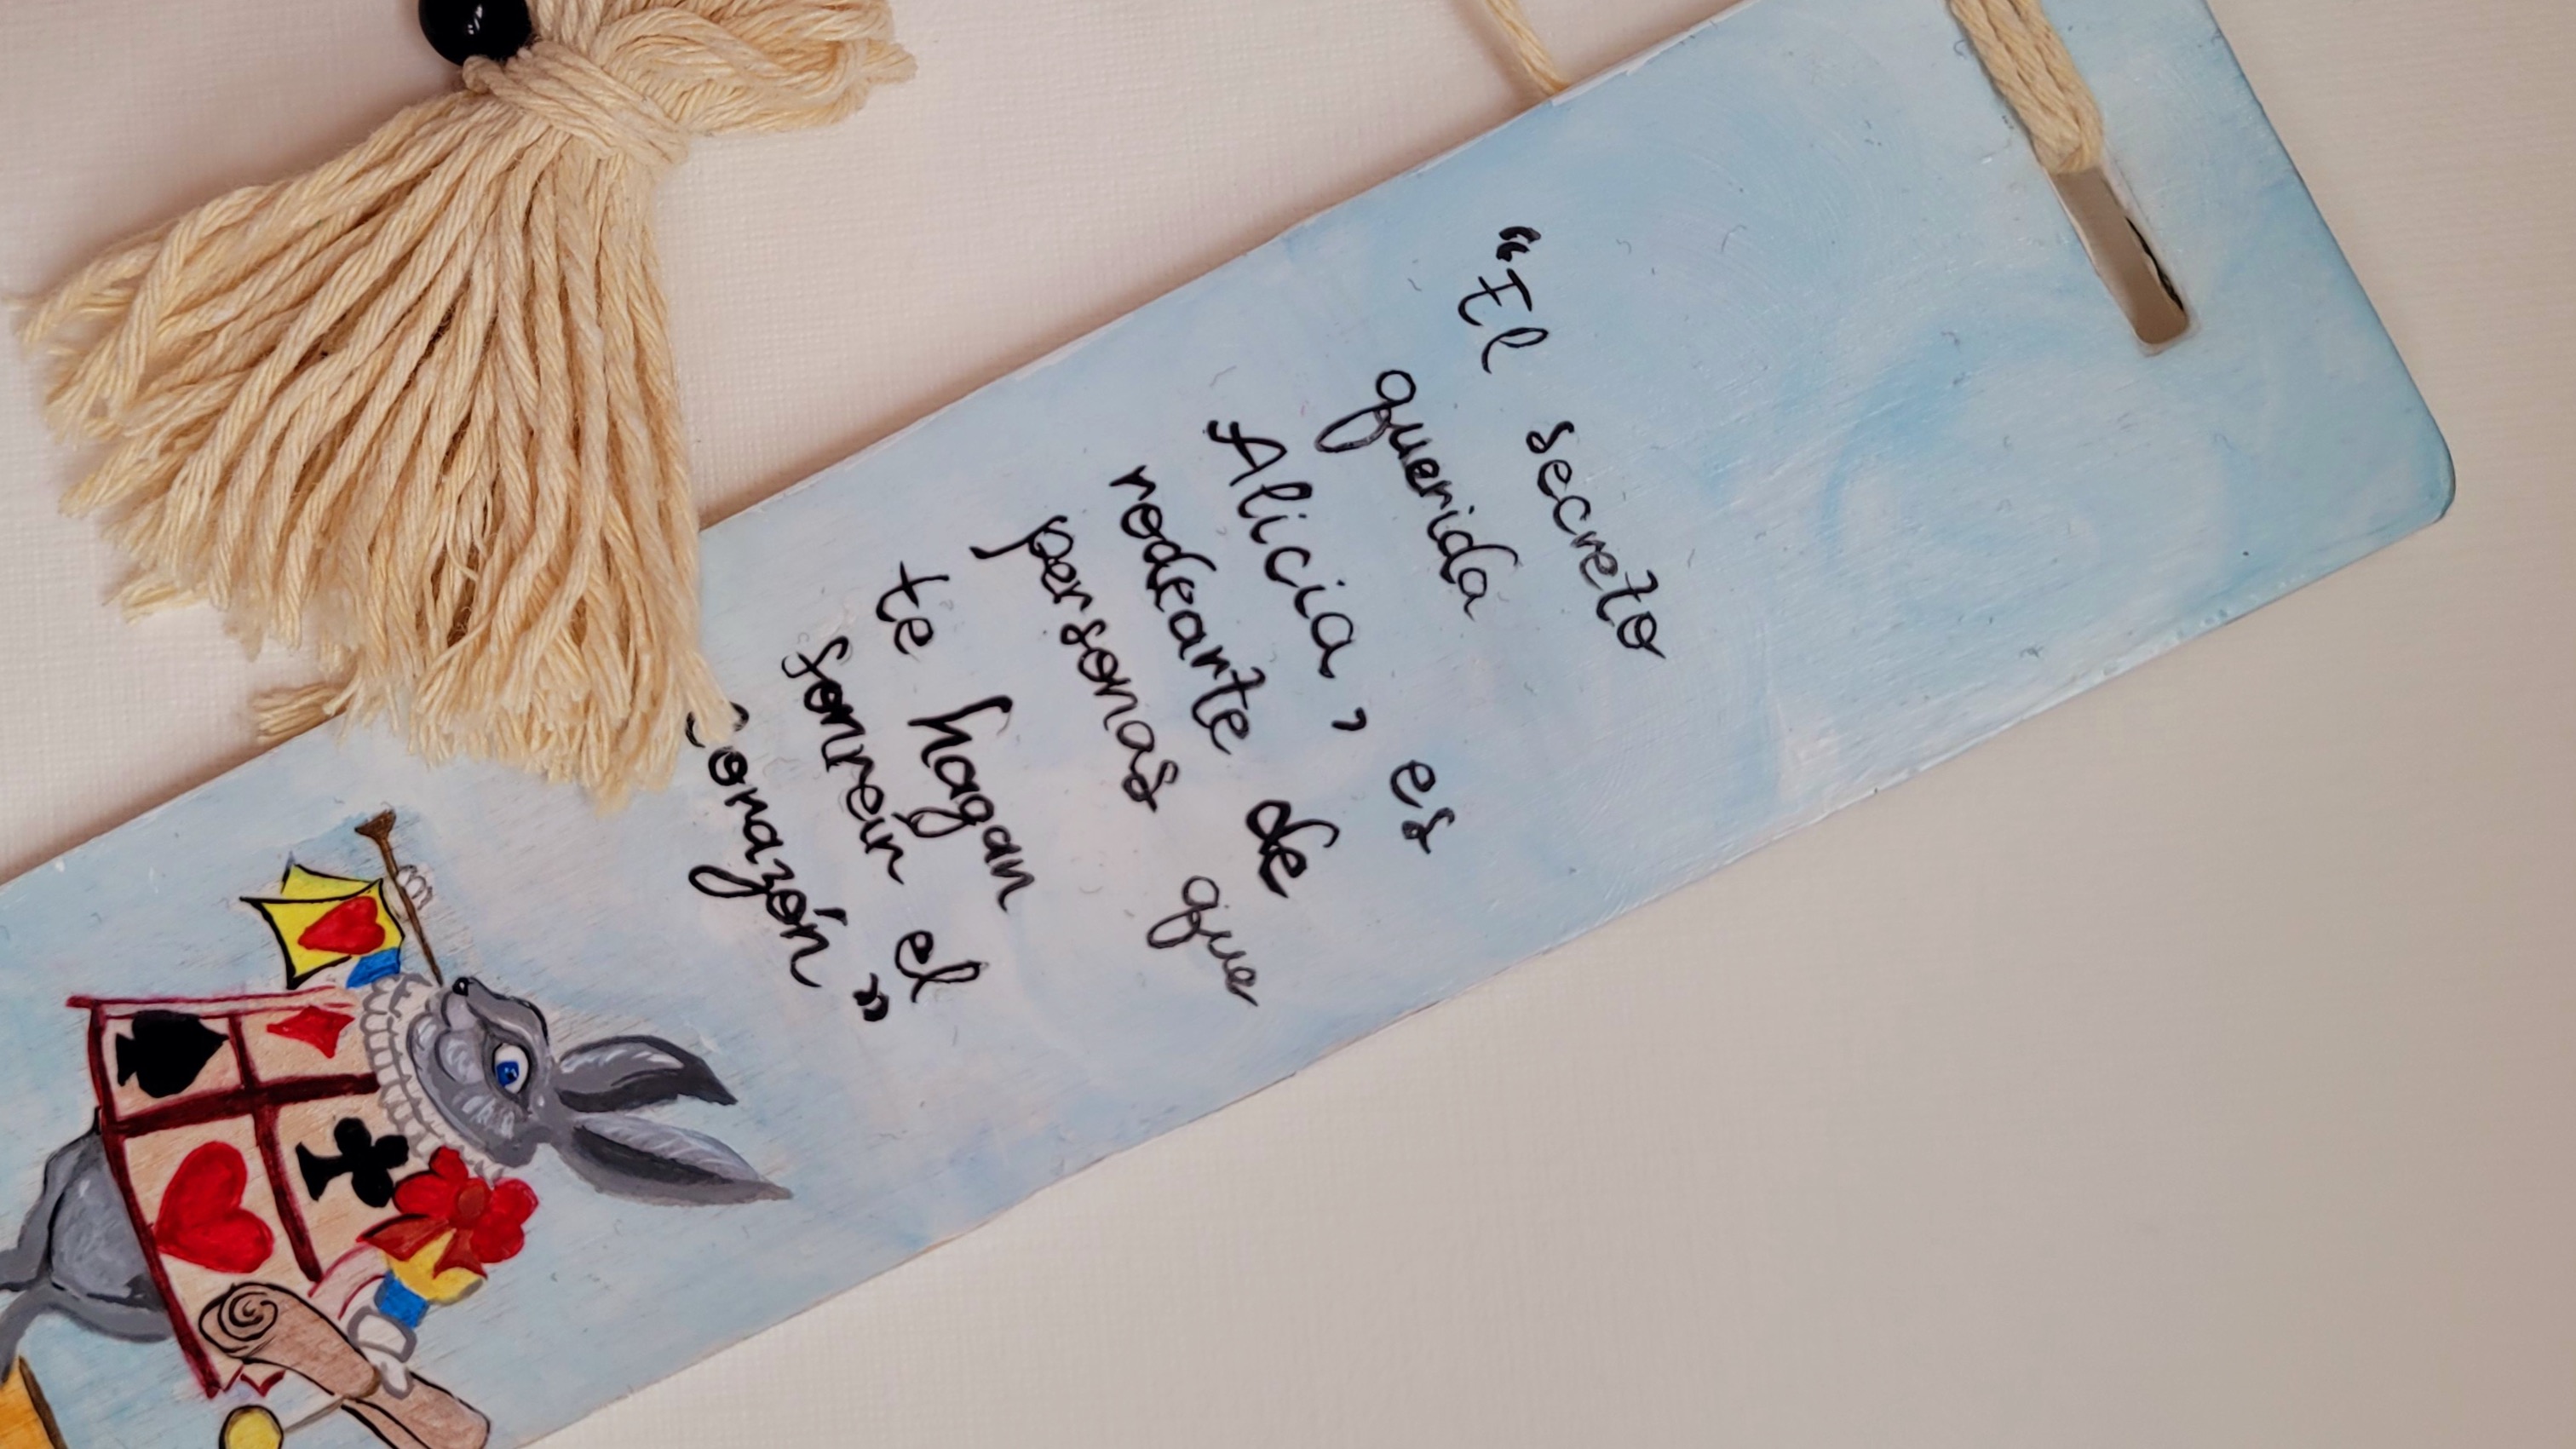 “El secreto
querida
Alicia, es
rodearte de
personas que
te hagan
sonreir el
corazón”